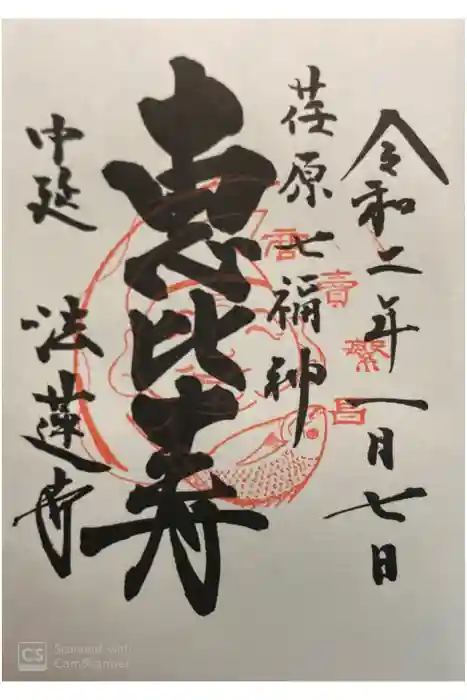 令和二年一月七日
荏原七福神
商賣繁昌
恵比寿
中延 法蓮寺
CS Scanned with
CamScanner